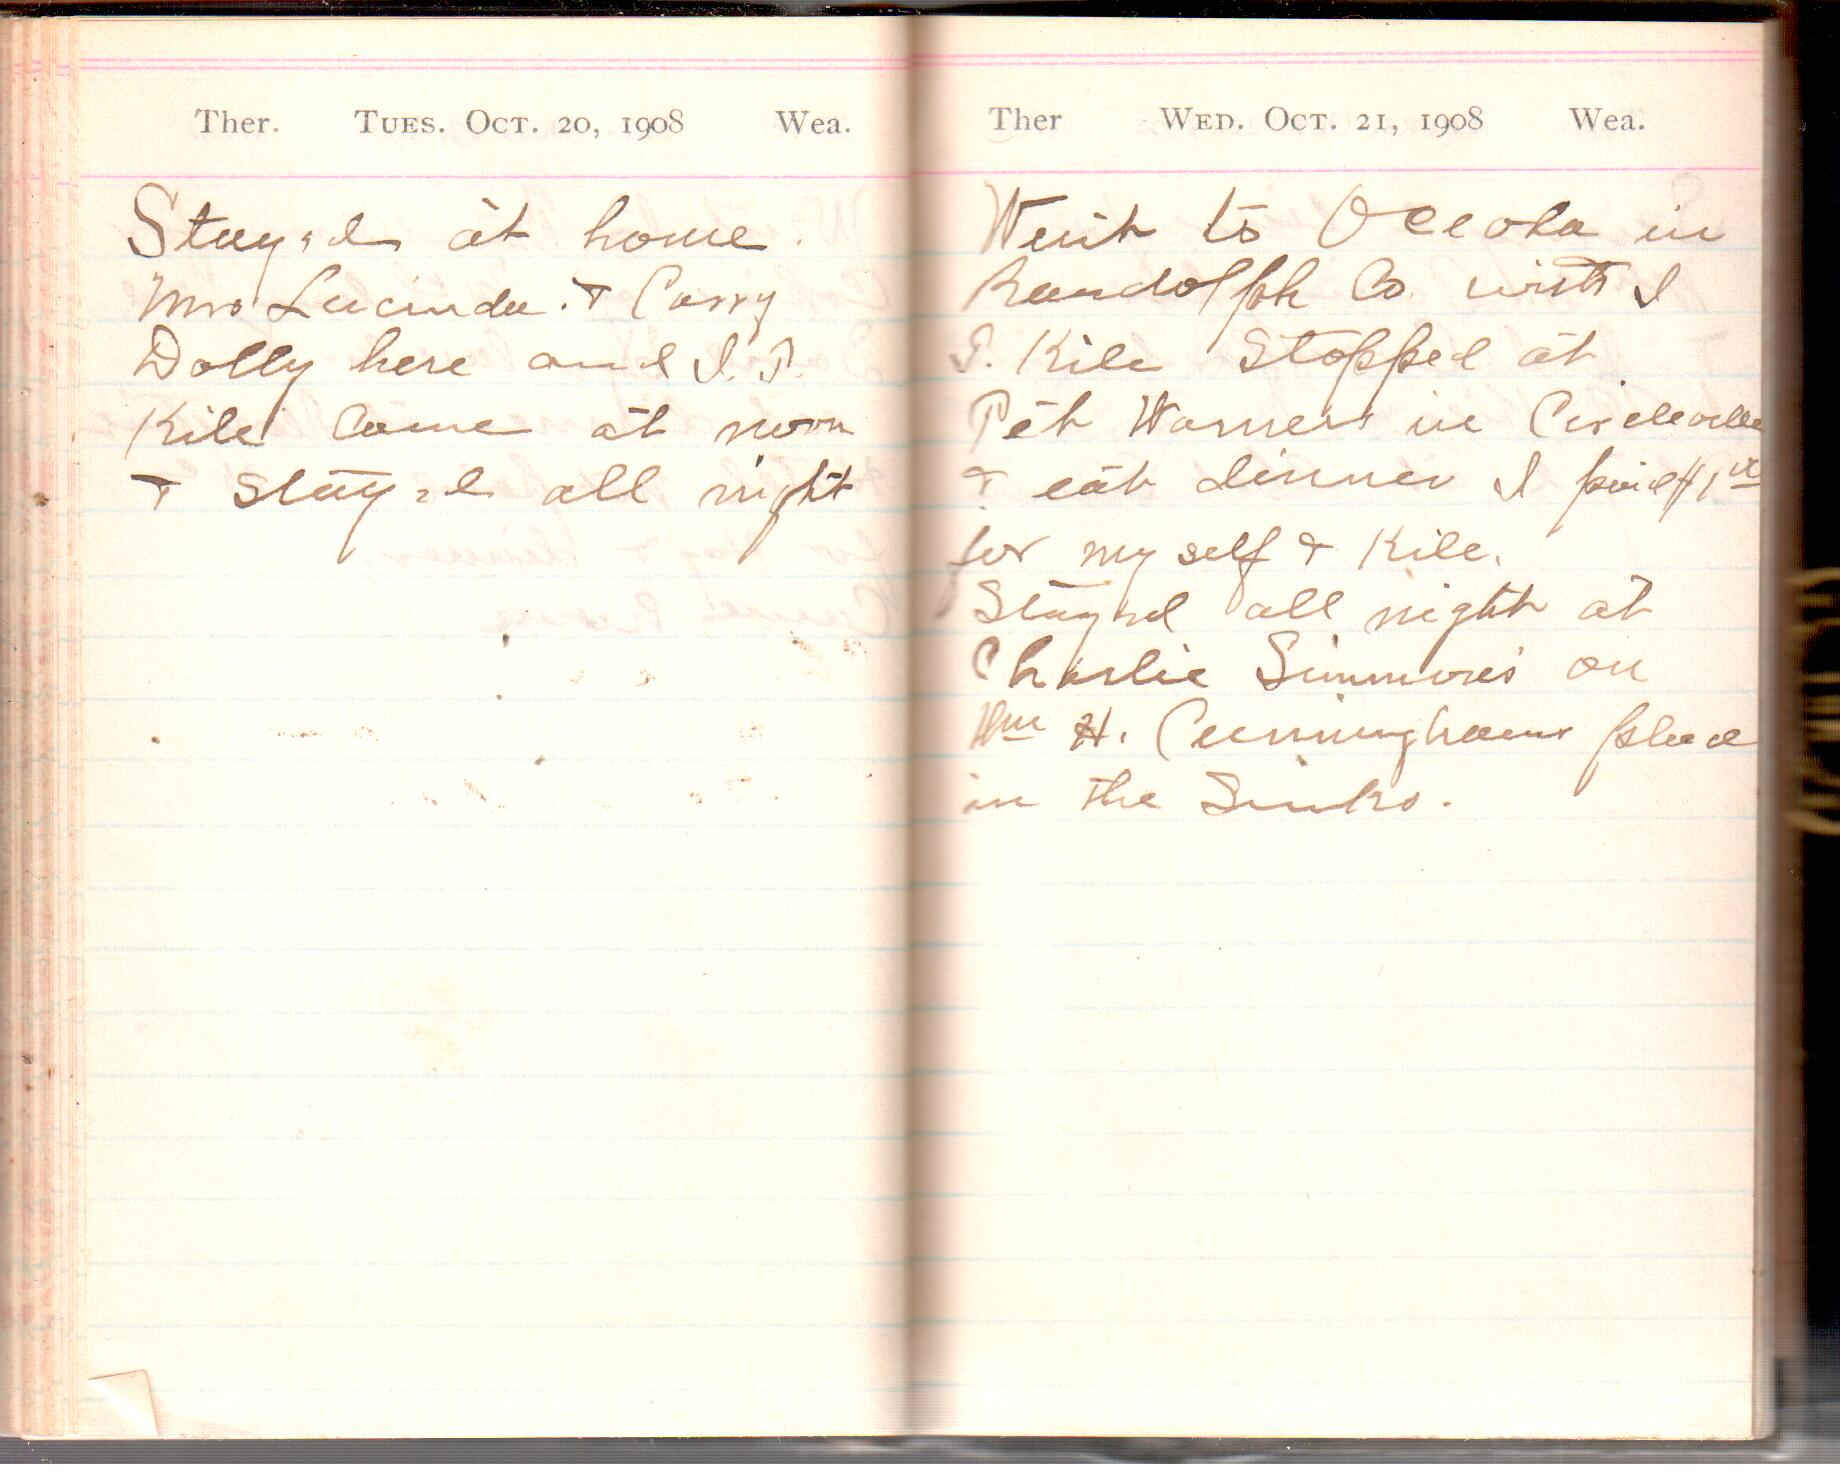 Ther. Tues. Oct. 20, 1908 Wea.
Stayed at home.
Mrs Lucinda & Carry
Dolly here and I. P.
Kile Came at noon
& Stayed all night
Ther Wed. Oct. 21, 1908 Wea.
Went to Oceola in
Randolph Co. with I
P. Kile Stopped at
Pet Warners in Circleville
& eat dinner I paid $1.00
for my self & Kile.
Stayed all night at
Charlie Simmons on
Wm H. Cunninghams place
in the Sinks.